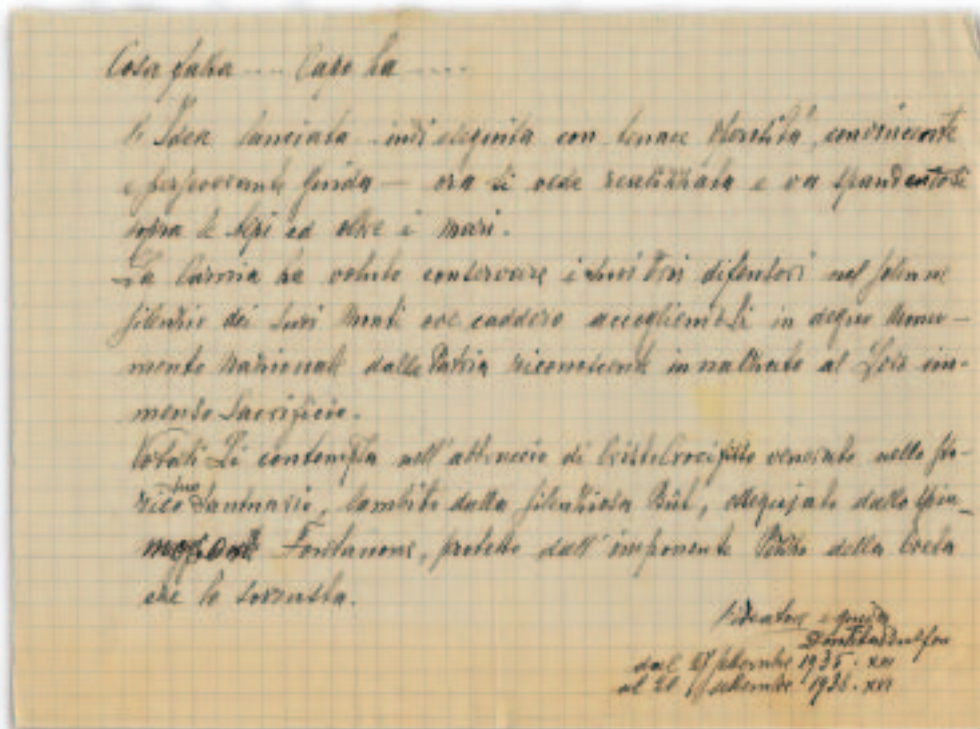 Cosa fatta .... Capo ha ....
L'Idea lanciata - indi eseguita con tenace volontà, convincente
e perseverante guida — ora si vede realizzata e va spandentosi
sopra le Alpi ed oltre i mari.
La Carnia ha voluto conservare i suoi Eroi difensori nel solenne
silenzio dei suoi Monti ove caddero accogliendoli in degno Monu-
mento Nazionale dalla Patria riconoscente innalzato al Loro im-
menso Sacrificio.
Votati Li contempla nell'abbraccio di Cristo Crocifisso venerato nello sto-
rico suo Santuario, lambito dalla silenziosa Bût, ossequiato dallo spu-
Fontanone, protetto dall'imponente Pizzo della Creta
che lo sovrasta.
L'Ideatore e guida
dal 27 settembre 1935. XIII
al 20 settembre 1938. XVI